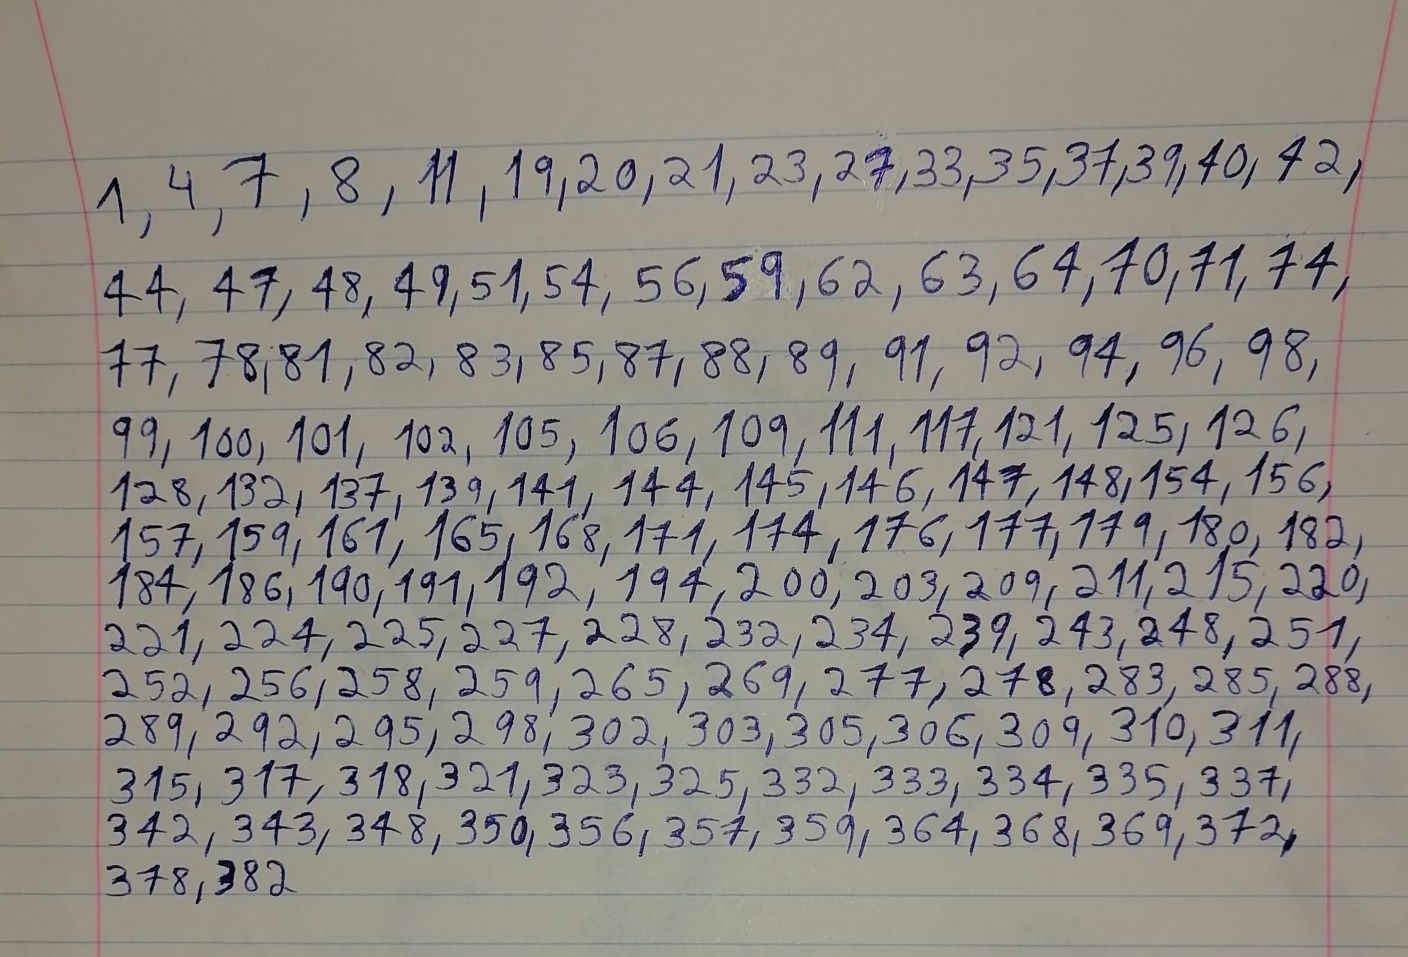 1, 4, 7, 8, 11, 19, 20, 21, 23, 27, 33, 35, 37, 39, 40, 42,
44, 47, 48, 49, 51, 54, 56, 59, 62, 63, 64, 70, 71, 74,
77, 78, 81, 82, 83, 85, 87, 88, 89, 91, 92, 94, 96, 98,
99, 100, 101, 102, 105, 106, 109, 111, 117, 121, 125, 126,
128, 132, 137, 139, 141, 144, 145, 146, 147, 148, 154, 156,
157, 159, 161, 165, 168, 171, 174, 176, 177, 179, 180, 182,
184, 186, 190, 191, 192, 194, 200, 203, 209, 211, 215, 220,
221, 224, 225, 227, 228, 232, 234, 239, 243, 248, 251,
252, 256, 258, 259, 265, 269, 277, 278, 283, 285, 288,
289, 292, 295, 298, 302, 303, 305, 306, 309, 310, 311,
315, 317, 318, 321, 323, 325, 332, 333, 334, 335, 337,
342, 343, 348, 350, 356, 357, 359, 364, 368, 369, 372,
378, 382